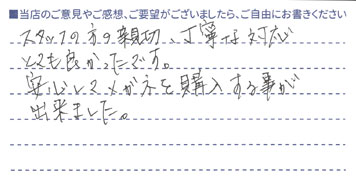 ■当店のご意見やご感想、ご要望がございましたら、ご自由にお書きください
スタッフの方の親切、丁寧な対応
とても良かったです。
安心してメガネを購入する事が
出来ました。